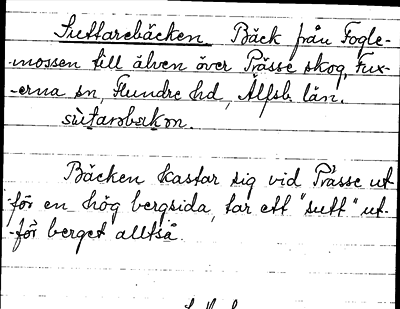 Suttarebäcken Bäck från Fogle-
-mossen till älven över Prässe skog, Fux-
-erna sn, Flundre hd, Älfsb. län.
sùtarobækon.
Bäcken kastar sig vid Prässe ut-
-för en hög bergsida, tar ett "sutt" ut-
-för berget alltså.